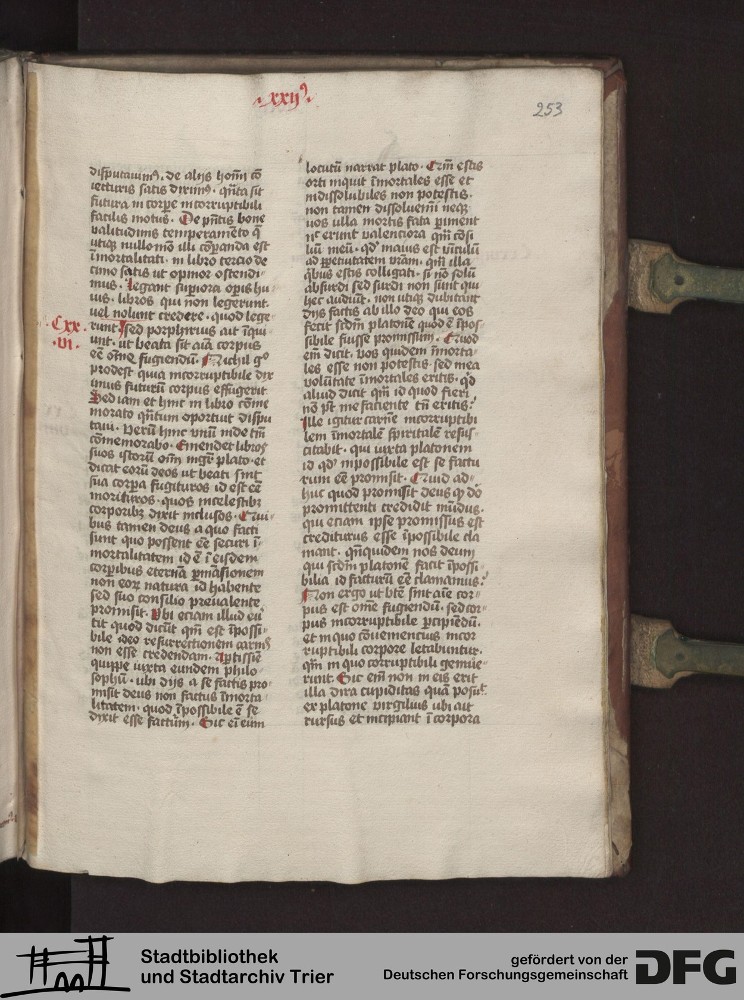 .xxij⁹.
253
disputauim⁹. de alijs homī cō
iecturis satis dixim⁹. qūta sit
futura in corpe incorruptibili
facilis motus. De pn̄tis bone
valitudinis temperamēto q̄
utiq̢ nullo mō illi cōpanda est
īmortalitati. in libro tercio de
cimo satis ut opinor ostendi
mus. legant supiora opis hu
ius. libros qui non legerunt.
uel nolunt credere. quod lege
Cxx.
.vi.
runt Sed porphirius ait īqui
unt. ut beata sit aīa corpus
eē om̄e fugiendū. Nichil g°
prodest quia incorruptibile dix
imus futurū corpus effugerit
Sed iam et hinc in libro cōme
morato qn̄tum oportuit dispu
taui. Verū hinc vnū inde tm̄
cōmemorabo. Emendet libros
suos istorū om̄ mgr̄ plato. et
dicat eorū deos ut beati sint
sua corpa fugituros id est eē
morituros. quos incelestibꝫ
corporibꝫ dixit inclusos. Qui
bus tamen deus a quo facti
sunt quo possent eē securi ī
mortalitatem id ē ī eisdem
corpibus eternā pmāsionem
non eorꝫ natura id habente
sed suo consilio preualente
promisit. Vbi eciam illud eū
tit quod dicūt qm̄ est īpossi
bile ideo resurrectionem carnis
non esse credendam. Aptissie
quippe iuxta eundem philo
sophū. ubi dijs a se factis pro
misit deus non factus īmorta
litatem. quod īpossibile ē se
dixit esse factum. Sic eī eum
locutū narrat plato. Qm̄ estis
orti inquit īmortales esse et
indissolubiles non potestis.
non tamen dissoluemī neq̢
vos ulla mortis fata piment
nͨ erunt valenciora qm̄ cōsi
liū meū. qd' maius est vīculū
ad ppetuitatem vr̄am. qm̄ illa
qͥbus estis colligati. si nō solū
absurdi sed surdi non sunt qui
hec audiūt. non utiq̢ dubitāt
dijs factis ab illo deo qui eos
fecit scdm̄ platonē quod ē īpos
sibile fuisse promissum. Quod
em̄ dicit. vos quidem īmorta
les esse non potestis sed mea
volūtate īmortales eritis. qd
aliud dicit qm̄ id quod fieri
nō pt̄ me faciente tn̄ eritis.
Ille igitur carnē incorruptibi
lem īmortalē spiritalē resus
citabit. qui iuxta platonem
id qd' inpossibile est se factu
rum eē promisit. Quid ad
huc quod promisit deus q̢ dō
promittenti credidit mūdus.
qui eciam ipse promissus est
crediturus esse īpossibile cla
mant. qn̄quidem nos deum
qui scdm̄ platonē facit īpossi
bilia id facturū eē clamamus.
Non ergo ut btē sint aīe cor
pus est om̄e fugiendū. sed cor
pus incorruptibile pcipiendū.
et in quo cōuenencius incor
ruptibili corpore letabuntur.
qm̄ in quo corruptibili gemue
runt. Sic em̄ non in eis erit
illa dira cupiditas quā posuͭ
ex platone virgilius ubi ait
rursus et incipiant ī corpora
Stadtbibliothek
und Stadtarchiv Trier
gefördert von der
Deutschen Forschungsgemeinschaft
DFG